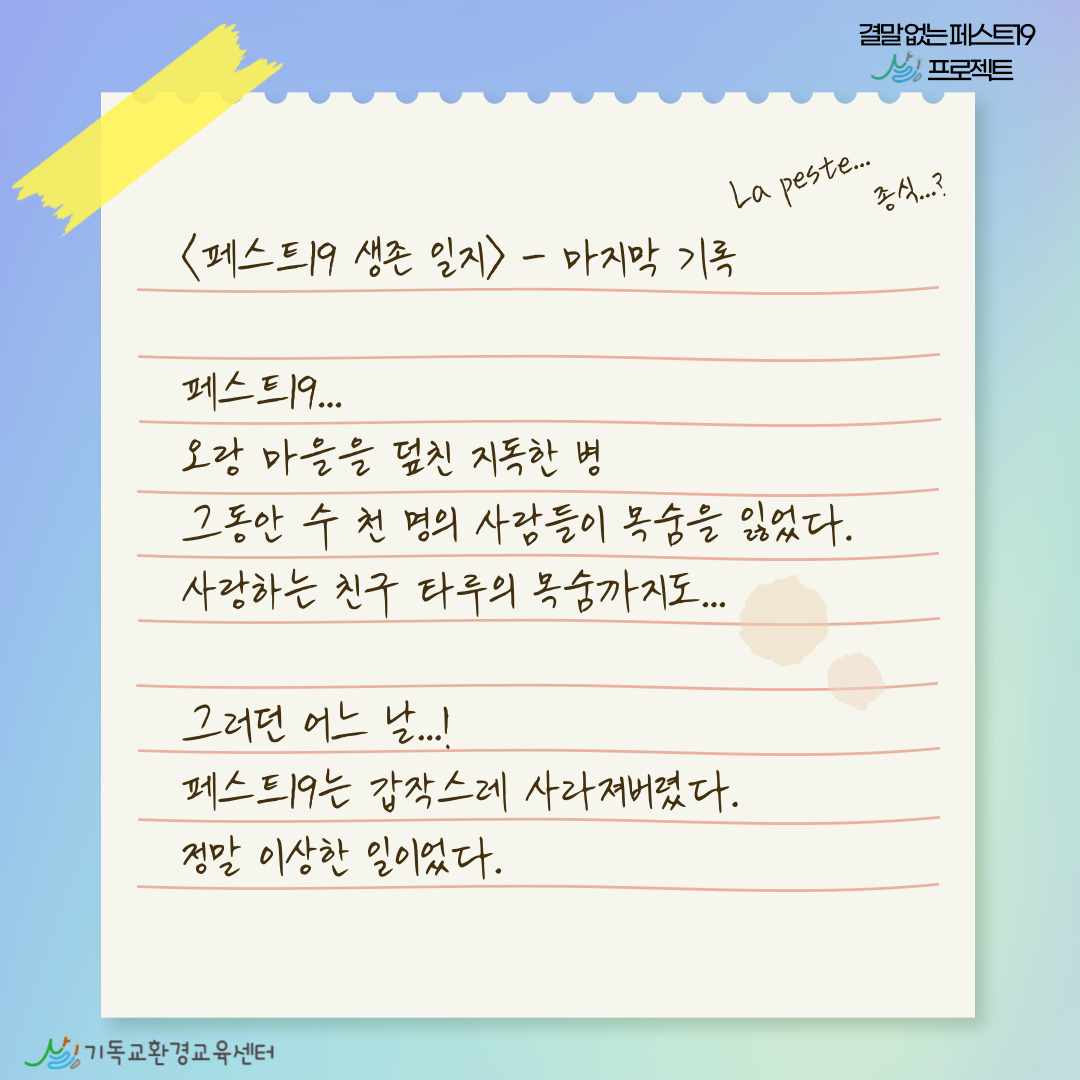 결말 없는 페스트19
프로젝트
La peste...
종식...?
<페스트19 생존 일지> - 마지막 기록
페스트19...
오랑 마을을 덮친 지독한 병
그동안 수 천 명의 사람들이 목숨을 잃었다.
사랑하는 친구 타루의 목숨까지도...
그러던 어느 날...!
페스트19는 갑작스레 사라져버렸다.
정말 이상한 일이었다.
기독교환경교육센터